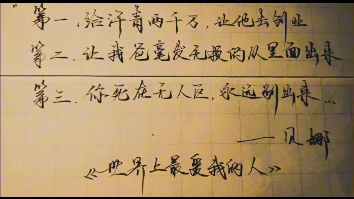 第一、给汗青两千万，让他去创业
第二、让我爸毫发无损的从里面出来
第三、你死在无人区，永远别出来…
——贝娜
《世界上最爱我的人》